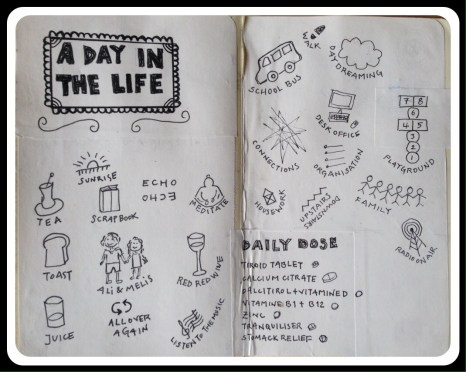 A DAY IN
THE LIFE
SUNRISE
TEA
SCRAPBOOK
ECHO
ECHO
MEDITATE
TOAST
ALi & MELiS
RED RED WINE
JUICE
ALL OVER
AGAIN
LISTEN TO THE MUSIC
WALK
SCHOOL BUS
DAY DREAMING
DESK OFFICE
CONNECTIONS
ORGANISATION
7 8
6
4 5
3
2
1
PLAYGROUND
HOUSEWORK
UPSTAIRS
DOWNSTAIRS
FAMILY
RADIO ON AIR
DAILY DOSE
TIROID TABLET
CALCIUM CITRATE
CALCITIROL + VITAMINE D
VITAMINE B1 + B12
ZINC
TRANQUILISER
STOMACK RELIEF